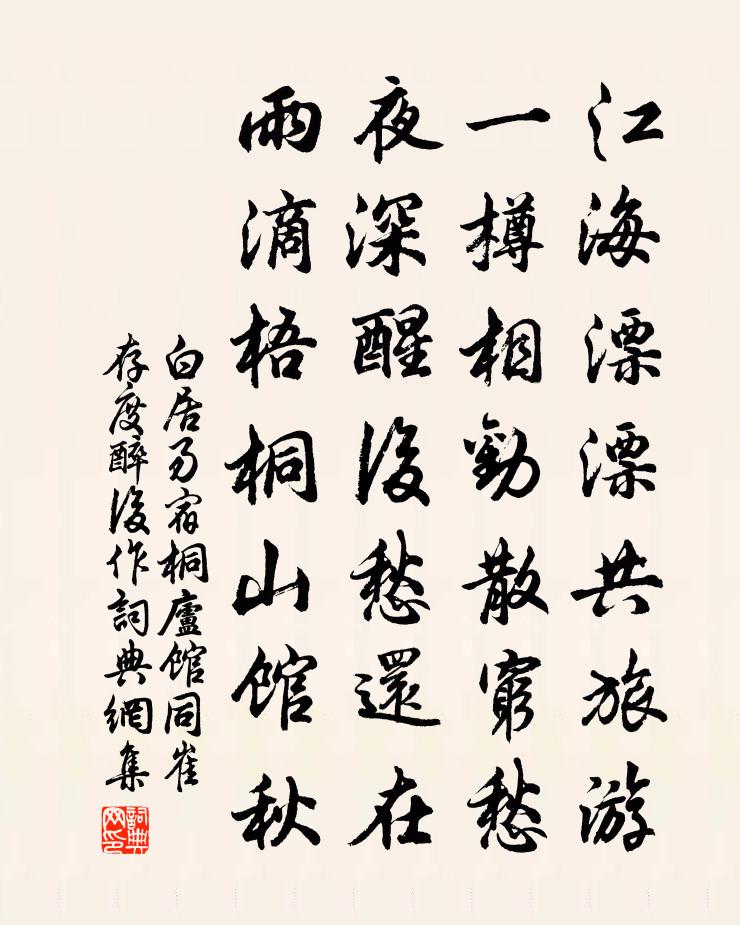 江海漂漂共旅游
一樽相勸散窮愁
夜深醒後愁還在
雨滴梧桐山館秋
白居易宿桐廬館同崔
存度醉後作詞典網集
詞典網印